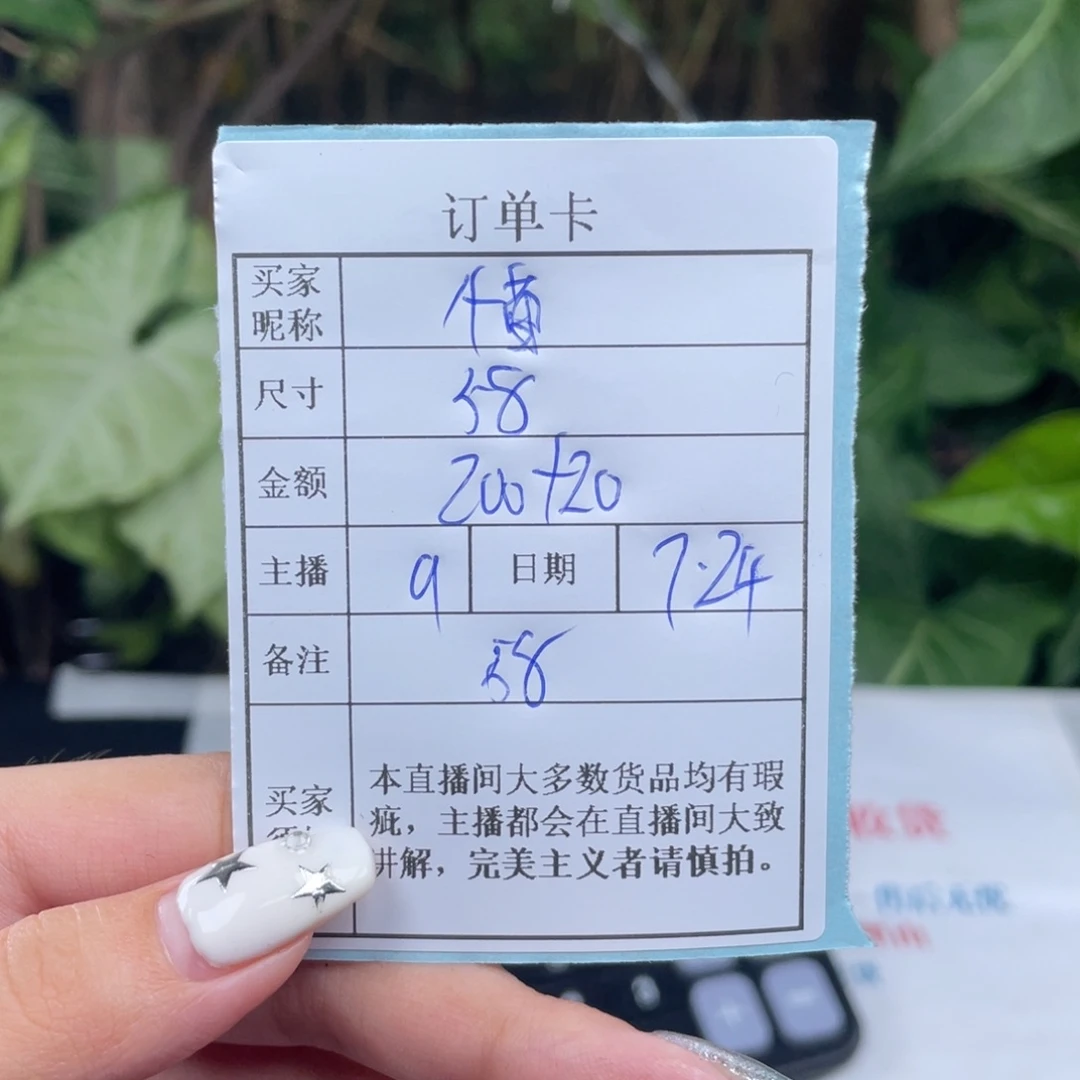 订单卡
买家
昵称
尺寸 58
金额 200+20
主播 9 日期 7.24
备注 58
买家
本直播间大多数货品均有瑕
疵，主播都会在直播间大致
讲解，完美主义者请慎拍。
收货
售后无忧